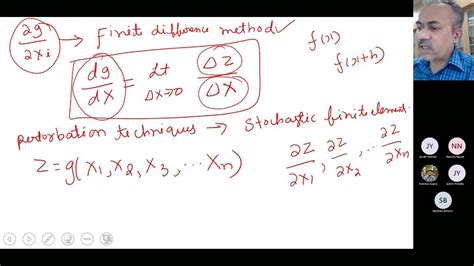 ∂g/∂xi → Finite difference method ✓
f(x)
f(x+h)
dg/dX = Lt ΔX→0 ΔZ/ΔX
perturbation techniques → Stochastic finite element
Z = g(X1, X2, X3, ... Xn)
∂Z/∂X1, ∂Z/∂X2, ... ∂Z/∂Xn
JY
NN
JY
SB